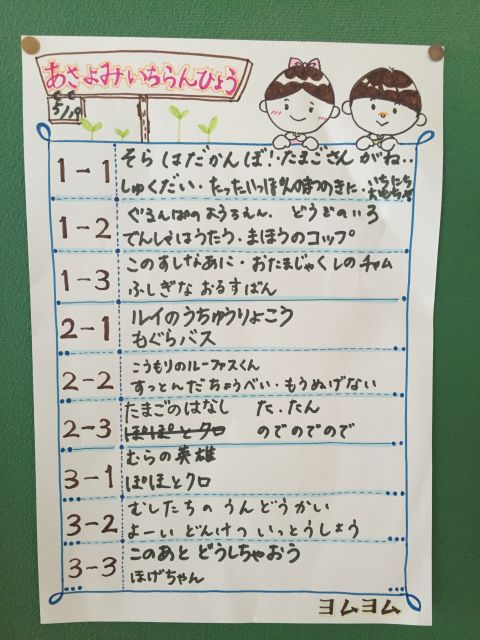 あさよみいちらんひょう
5/19
1-1
そらはだかんぼ!・たまごさんがね‥
しゅくだい・たったいっぽんの
いちにち
1-2
ぐるんぱのようちえん. どうどのいろ
でんしゃはうたう・まほうのコップ
1-3
このすしなあに・おたまじゃくしのチャム
ふしぎな おるすばん
2-1
ルイのうちゅうりょこう
もぐらバス
2-2
こうもりのルーファスくん
すっとんだちょうべい・もうぬげない
2-3
たまごのはなし た.たん
ぽぽとクロ のでのでので
3-1
むらの英雄
ぽぽとクロ
3-2
むしたちの うんどうかい
よーい どんけつ いっとうしょう
3-3
このあと どうしちゃおう
ほげちゃん
ヨムヨム